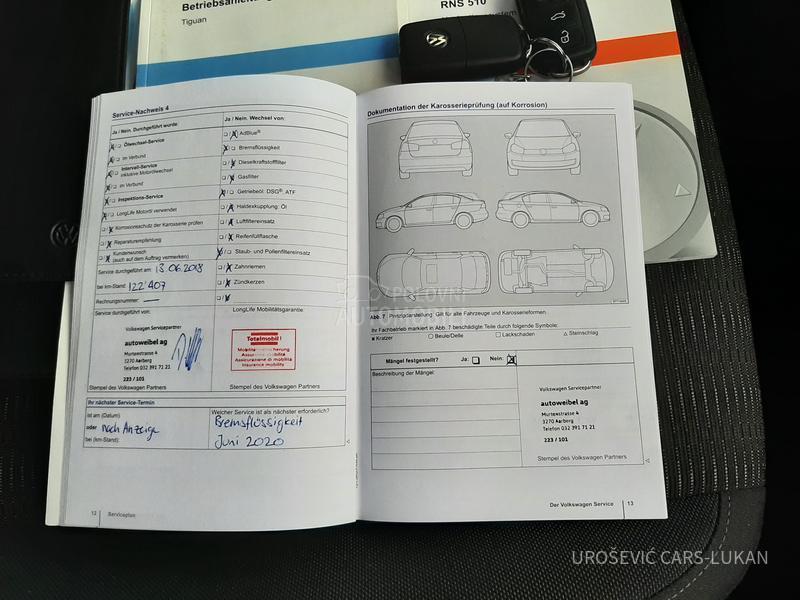 Betriebsanleitung
Tiguan
RNS 510
Service-Nachweis 4
Ja / Nein. Durchgeführt wurde:
Ölwechsel-Service
im Verbund
Intervall-Service
inklusive Motorölwechsel
im Verbund
Inspektions-Service
LongLife Motoröl verwendet
Korrosionsschutz der Karosserie prüfen
Reparaturempfehlung
Kundenwunsch
(auch auf dem Auftrag vermerken)
Service durchgeführt am: 13.06.2018
bei km-Stand: 122'407
Rechnungsnummer: —
Ja / Nein. Wechsel von:
AdBlue®
Bremsflüssigkeit
Dieselkraftstofffilter
Gasfilter
Getriebeöl: DSG®, ATF
Haldexkupplung: Öl
Luftfiltereinsatz
Reifenfüllflasche
Staub- und Pollenfiltereinsatz
Zahnriemen
Zündkerzen
Service durchgeführt von:
Volkswagen Servicepartner
autoweibel ag
Murtenstrasse 4
3270 Aarberg
Telefon 032 391 71 21
223 / 101
Stempel des Volkswagen Partners
LongLife Mobilitätsgarantie:
Totalmobil!
Mobilitätsversicherung
Assurance mobilité
Assicurazione di mobilità
Insurance mobility
Stempel des Volkswagen Partners
Ihr nächster Service-Termin
ist am (Datum)
oder nach Anzeige
bei (km-Stand):
Welcher Service ist als nächster erforderlich?
Bremsflüssigkeit
Juni 2020
12 Serviceplan
Dokumentation der Karosserieprüfung (auf Korrosion)
Abb. 7 Prinzipdarstellung: Gilt für alle Fahrzeuge und Karosserieformen.
Ihr Fachbetrieb markiert in Abb. 7 beschädigte Teile durch folgende Symbole:
Kratzer Beule/Delle Lackschaden Steinschlag
Mängel festgestellt? Ja: Nein:
Beschreibung der Mängel:
Volkswagen Servicepartner
autoweibel ag
Murtenstrasse 4
3270 Aarberg
Telefon 032 391 71 21
223 / 101
Stempel des Volkswagen Partners
Der Volkswagen Service 13
POLOVNI
AUTOMOBILI
UROŠEVIĆ CARS-LUKAN